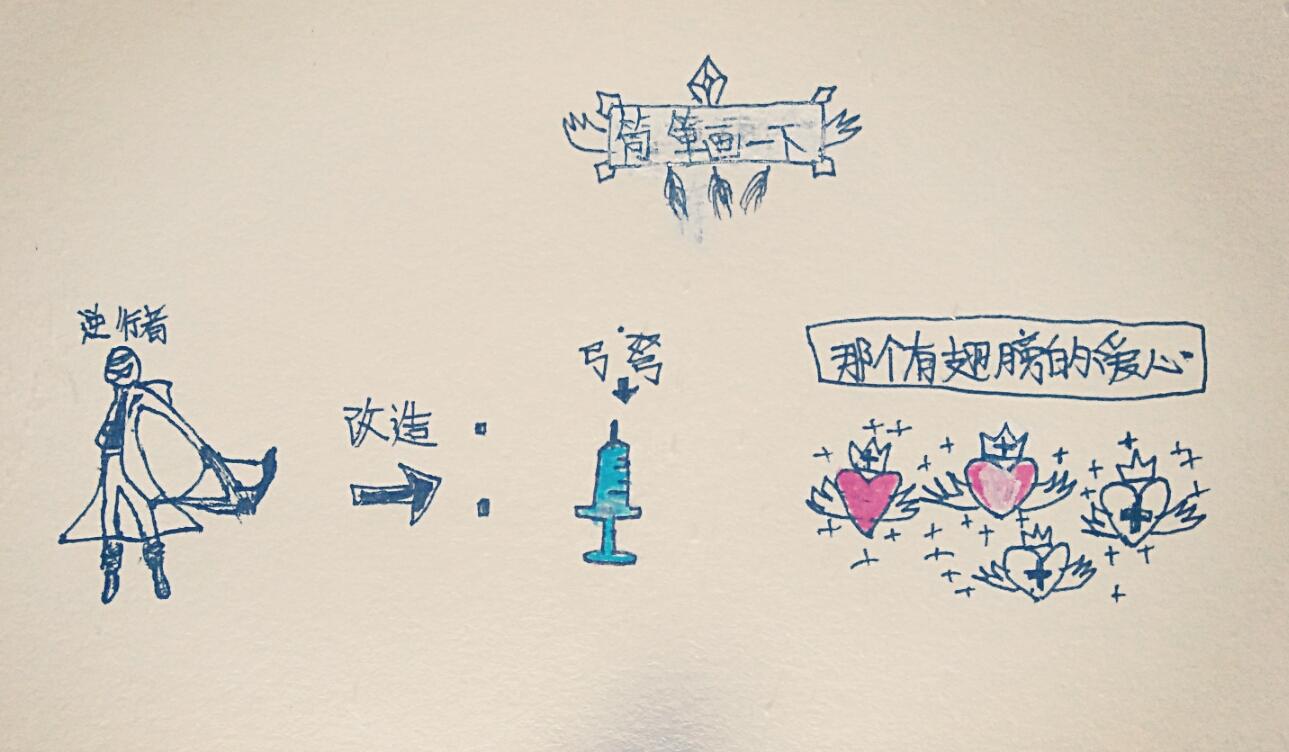 简单画一下
逆行者
改造：
弓弩
那个有翅膀的爱心